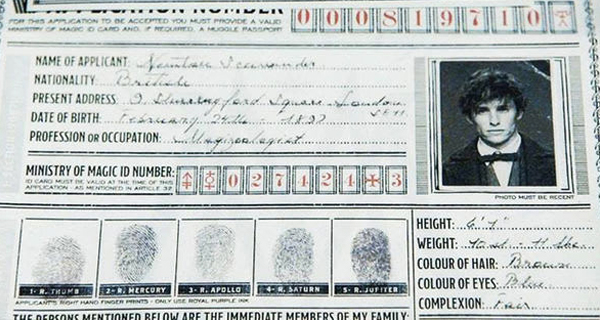 APPLICATION NUMBER
000819710
FOR THIS APPLICATION TO BE ACCEPTED YOU MUST PROVIDE A VALID
MINISTRY OF MAGIC ID CARD AND, IF REQUIRED, A MUGGLE PASSPORT
NAME OF APPLICANT: Newton Scamander
NATIONALITY: British
PRESENT ADDRESS: Square London
DATE OF BIRTH: February 24th 1897
PROFESSION OR OCCUPATION: Magizoologist
MINISTRY OF MAGIC ID NUMBER: 027424 3
ID CARD MUST BE VALID AT THE TIME OF THIS
APPLICATION - AS MENTIONED IN ARTICLE
PHOTO MUST BE RECENT
1- R. THUMB
2- R. MERCURY
3- R. APOLLO
4- R. SATURN
5- R. JUPITER
APPLICANT'S RIGHT HAND FINGER PRINTS - ONLY USE ROYAL PURPLE INK
HEIGHT:
WEIGHT:
COLOUR OF HAIR: Brown
COLOUR OF EYES: Blue
COMPLEXION: Fair
THE PERSONS MENTIONED BELOW ARE THE IMMEDIATE MEMBERS OF MY FAMILY: